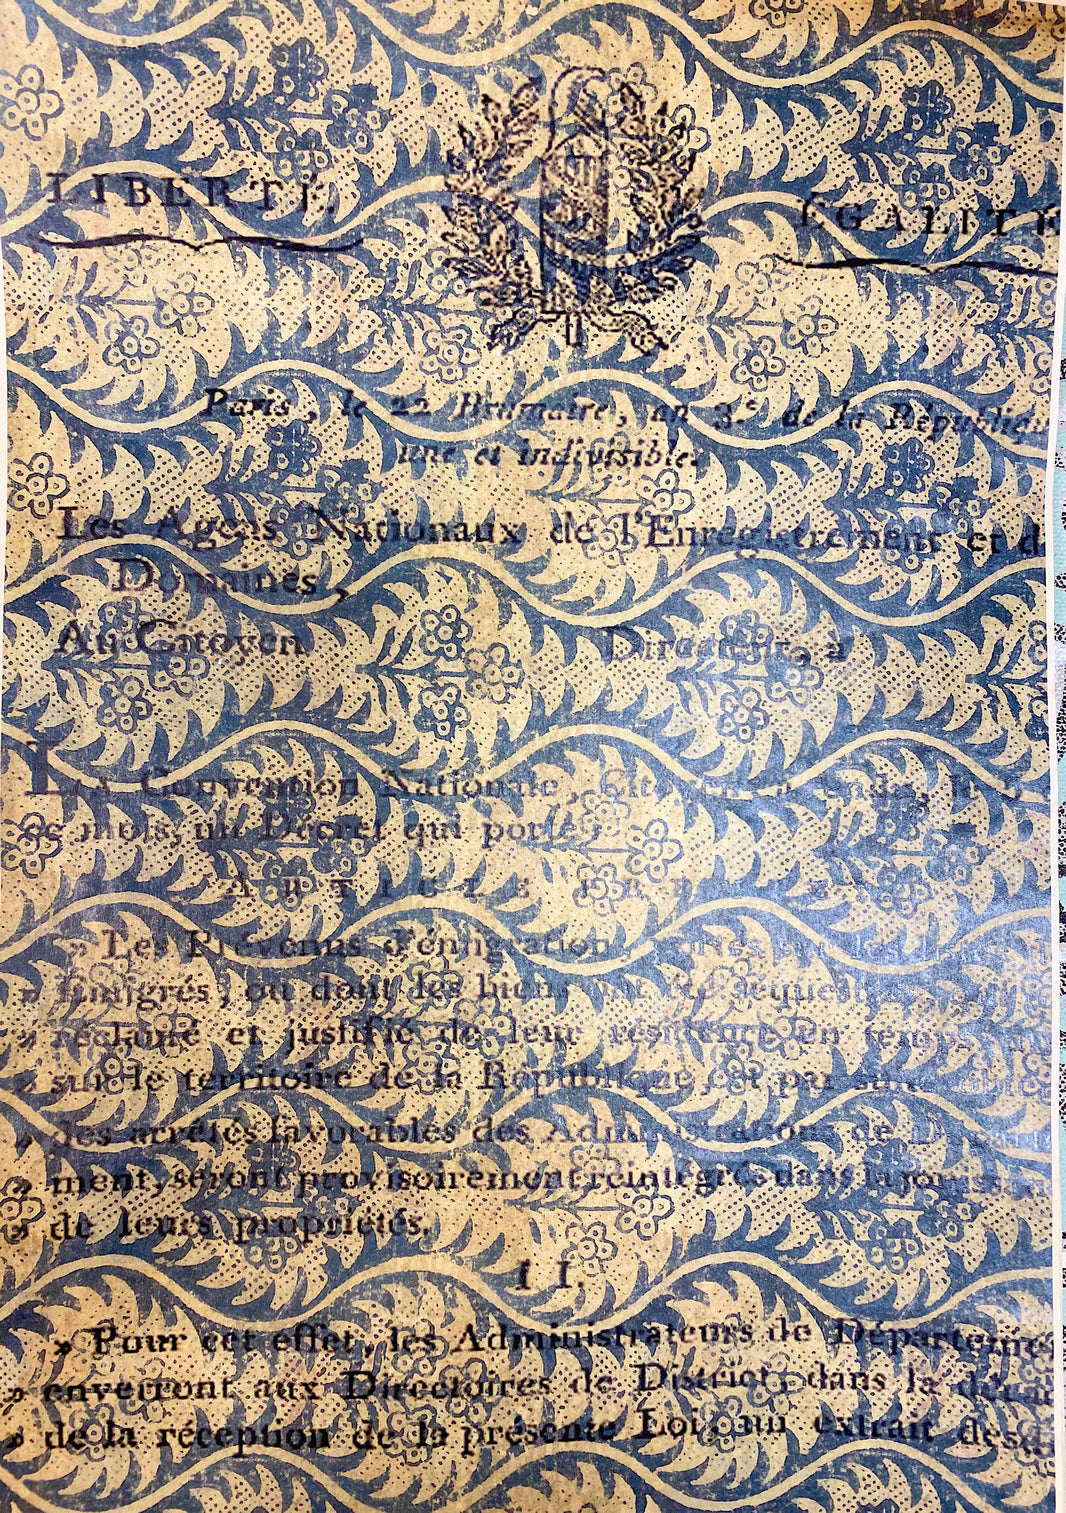 LIBERTÉ.
ÉGALITÉ
Paris, le 22 Brumaire, an 3.e de la Républiqu
une et indivisible.
Les Agens Nationaux de l'Enregistrement et d
Domaines,
Au Citoyen Directeur, à
LA Convention Nationale, Citoyen, a rendu, le
ce mois, un Décret qui porte:
ARTICLE PREMIER
» Les Prévenus d'émigration portés sur les
» Émigrés, ou dont les biens ont été séquest
» réclamé et justifié de leur résidence en temps
» sur le territoire de la République, et par suite
» des arrêtés favorables des Administrations de Départ
» ment, seront provisoirement réintégrés dans la jouissan
» de leurs propriétés.
II.
» Pour cet effet, les Administrateurs de Départemen
» enverront aux Directoires de District, dans la décad
» de la réception de la présente Loi, un extrait des